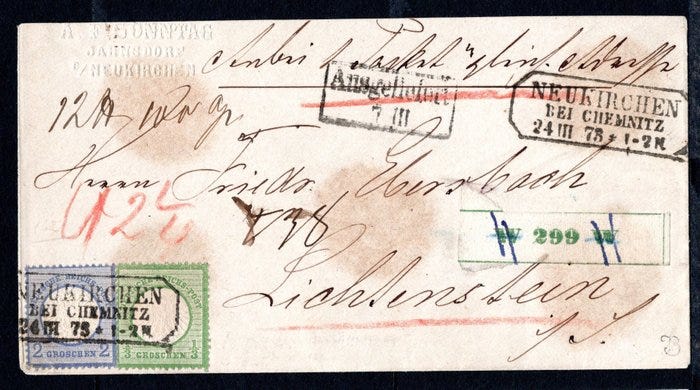 A. F. SONNTAG
JAHNSDORF
b/NEUKIRCHEN
Anbei 1 Packet gleich. Adresse
Ausgeliefert
7 III
NEUKIRCHEN
BEI CHEMNITZ
24 III 73 * 1-2 N
12
Herrn Friedr. Ebersbach
W 299 W
Lichtenstein
i/S.
NEUKIRCHEN
BEI CHEMNITZ
24 III 73 * 1-2 N
2 GROSCHEN 2
1/3 GROSCHEN 1/3